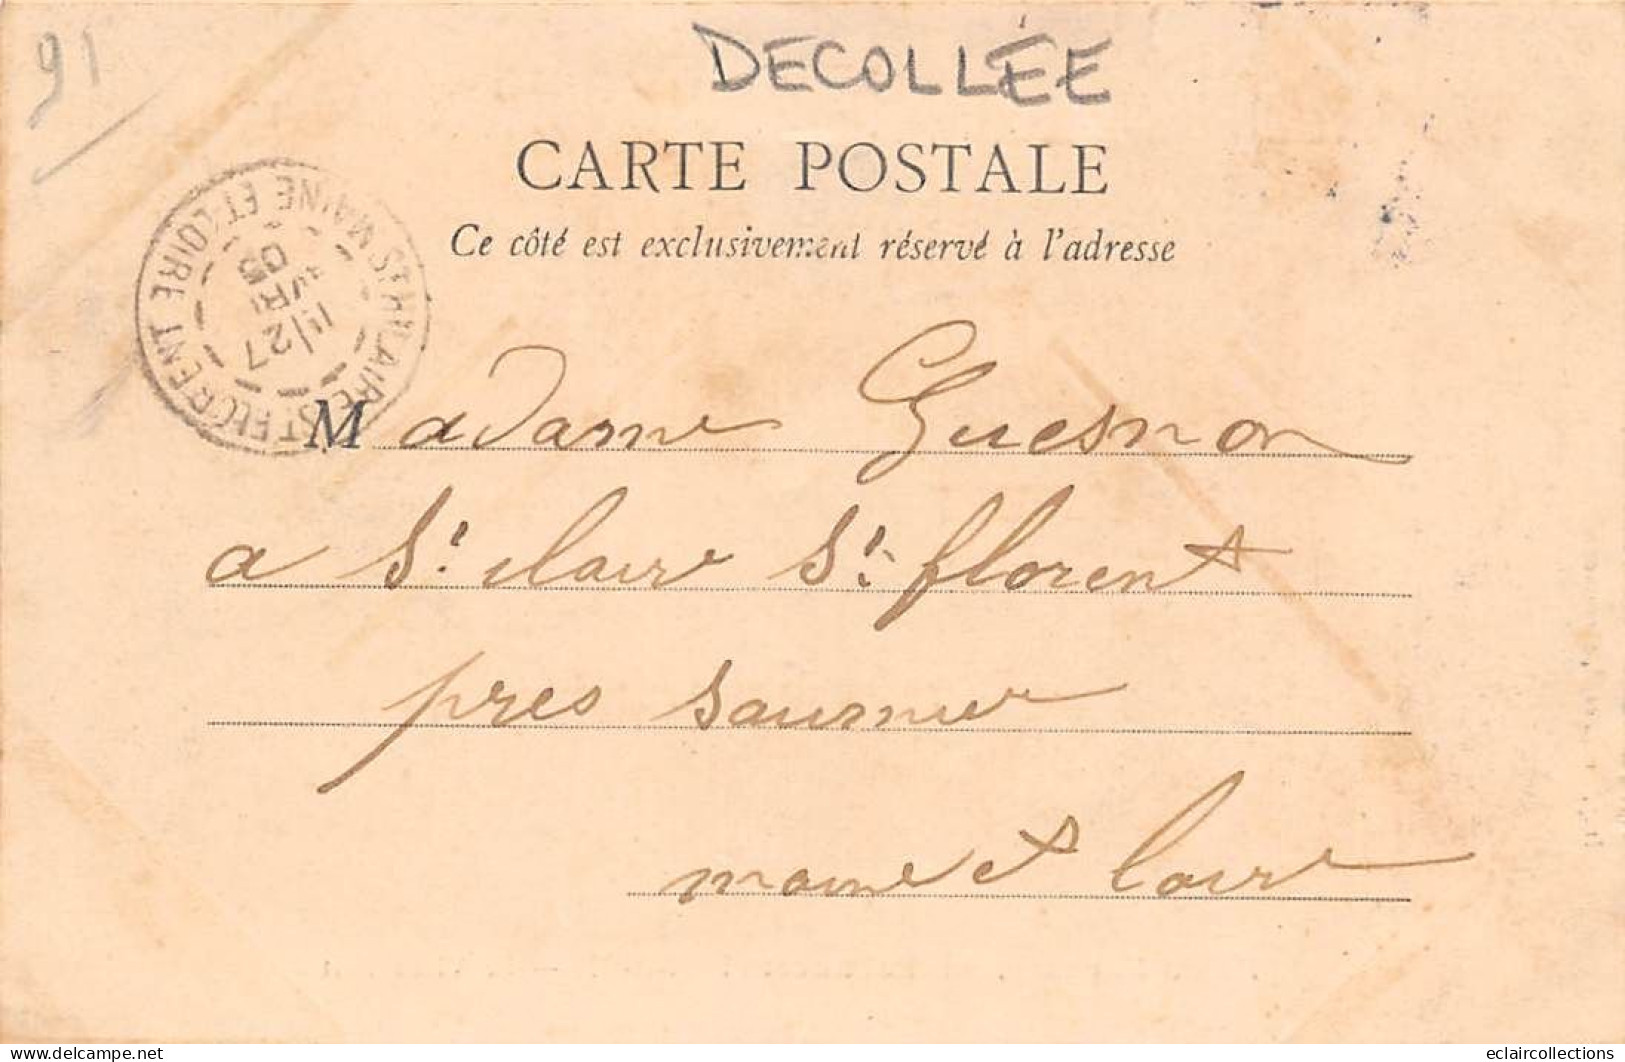 91
DECOLLÉE
CARTE POSTALE
Ce côté est exclusivement réservé à l'adresse
ST HILAIRE ST FLORENT MAINE ET LOIRE
27
AVRIL
05
Madame Guesnon
a St. Clair St. florent
pres Saumur
maine et Loire
eclaircollections